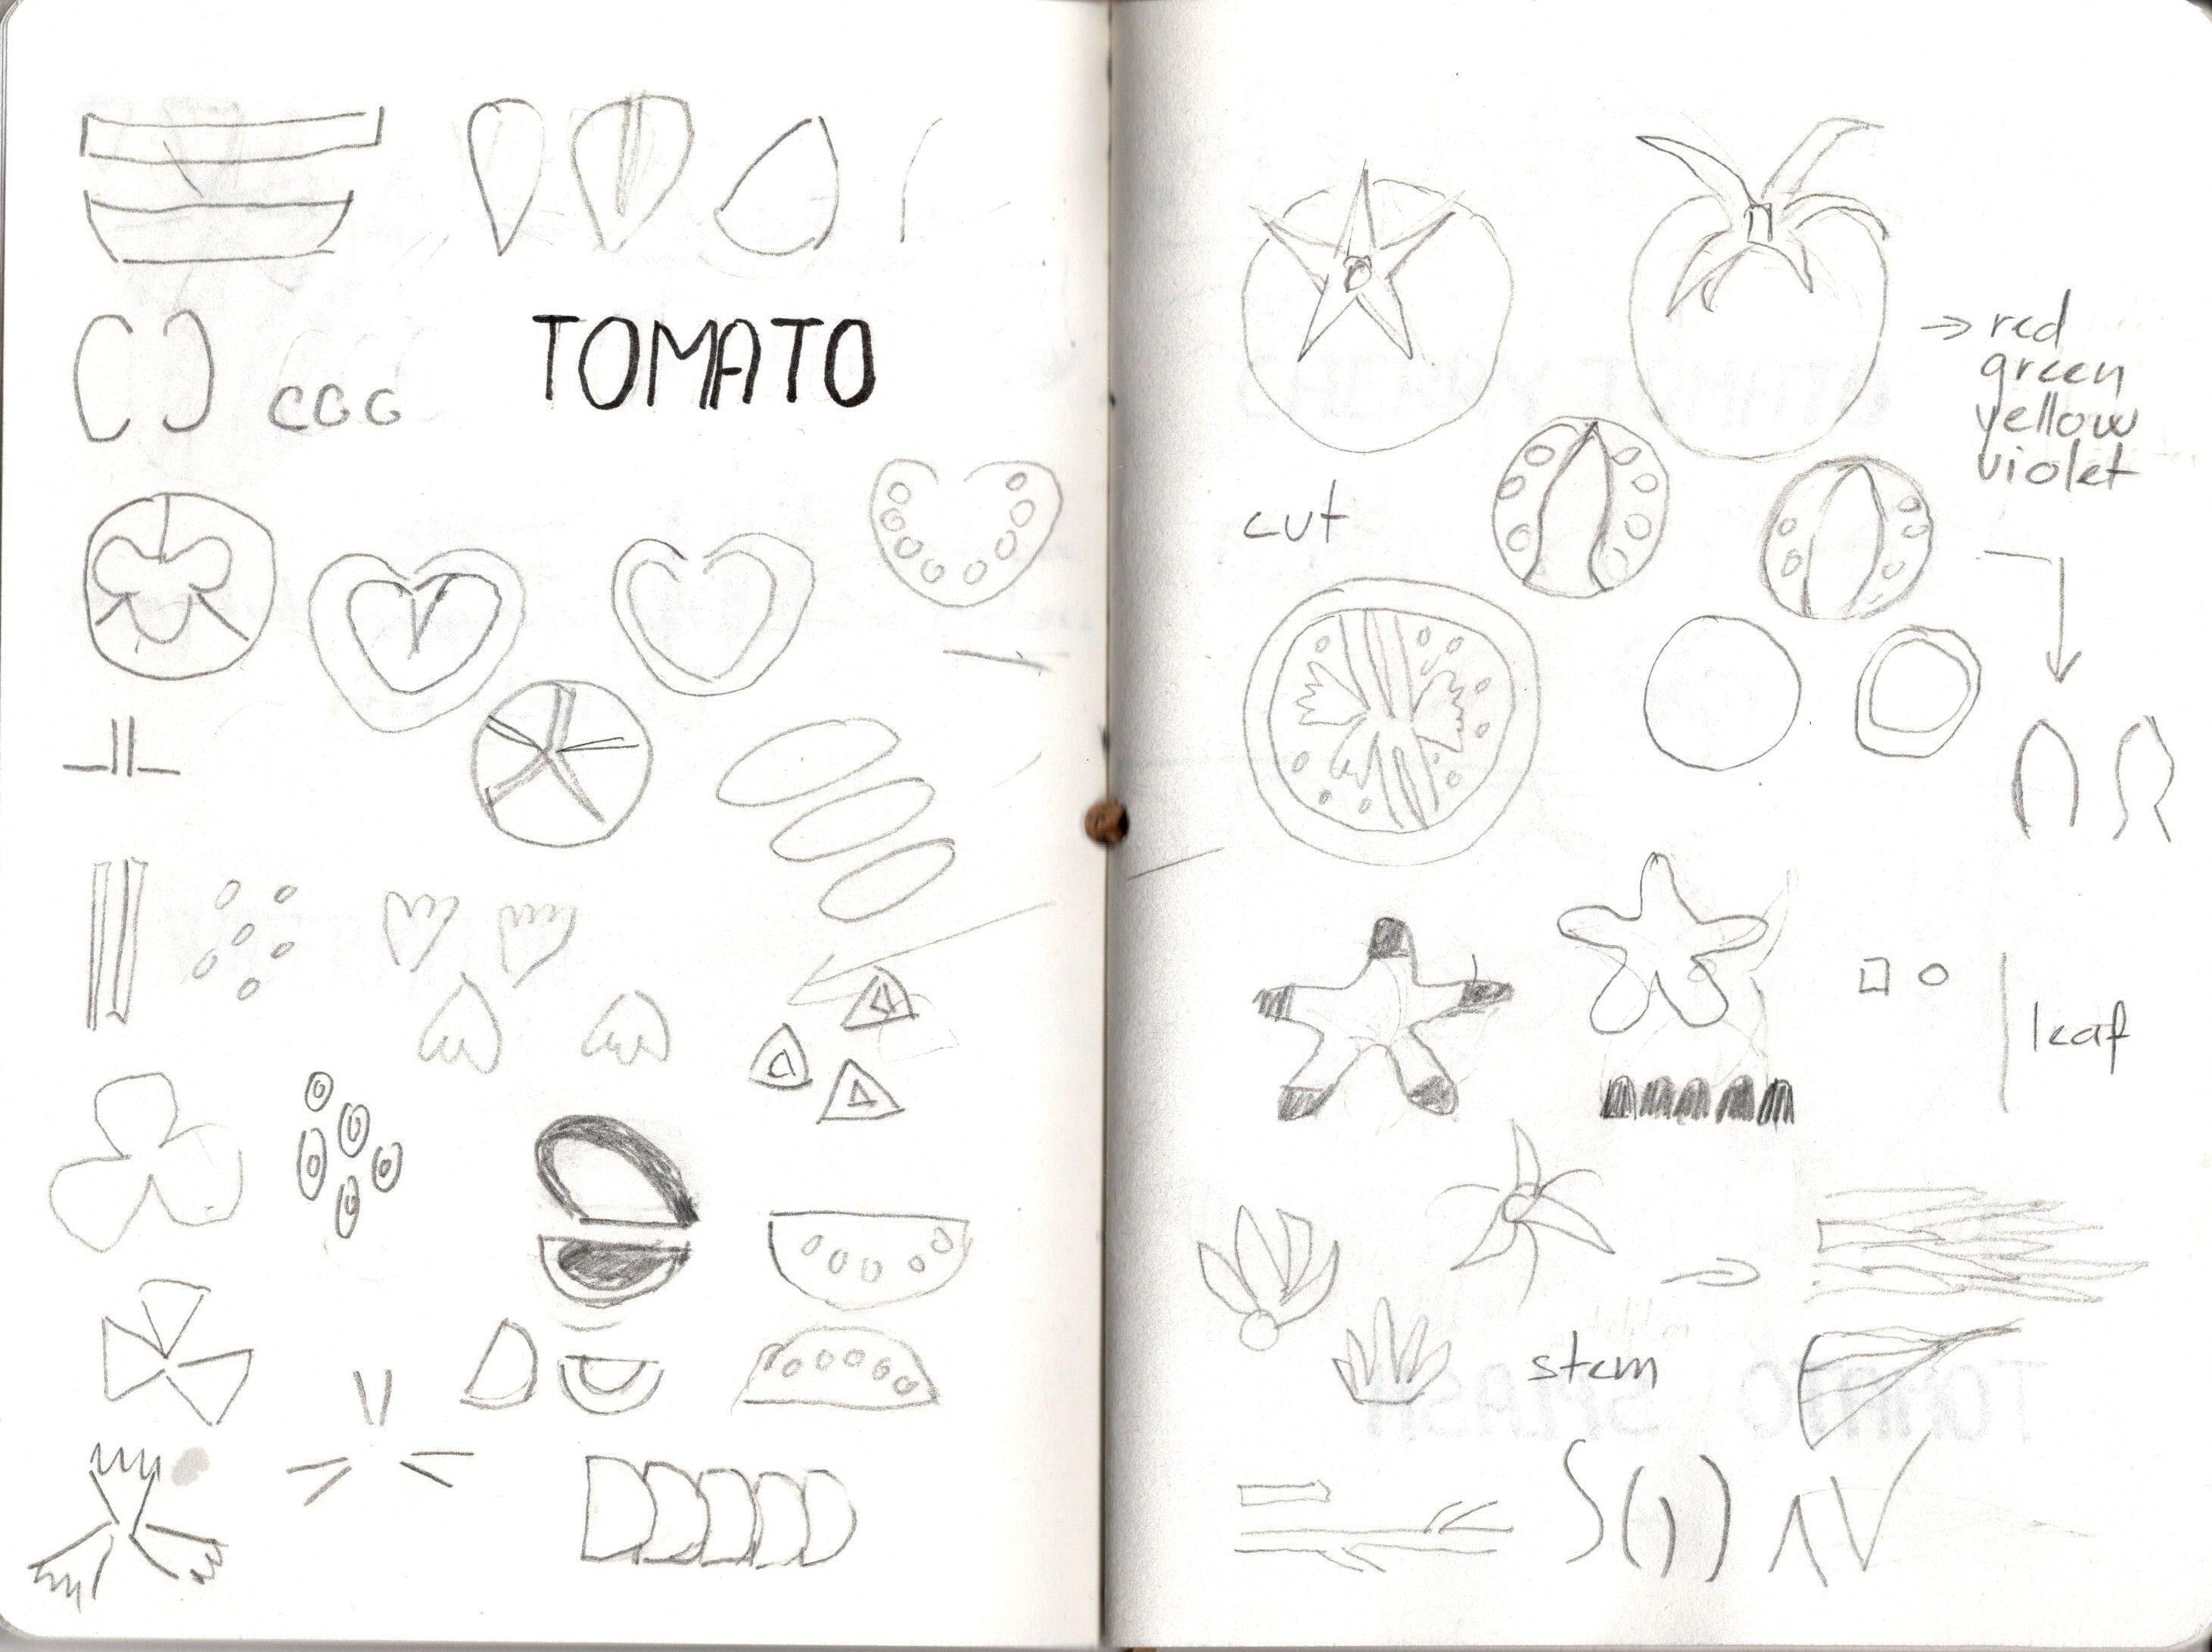 TOMATO
red
green
yellow
violet
cut
leaf
stem
TOMATO SPLASH